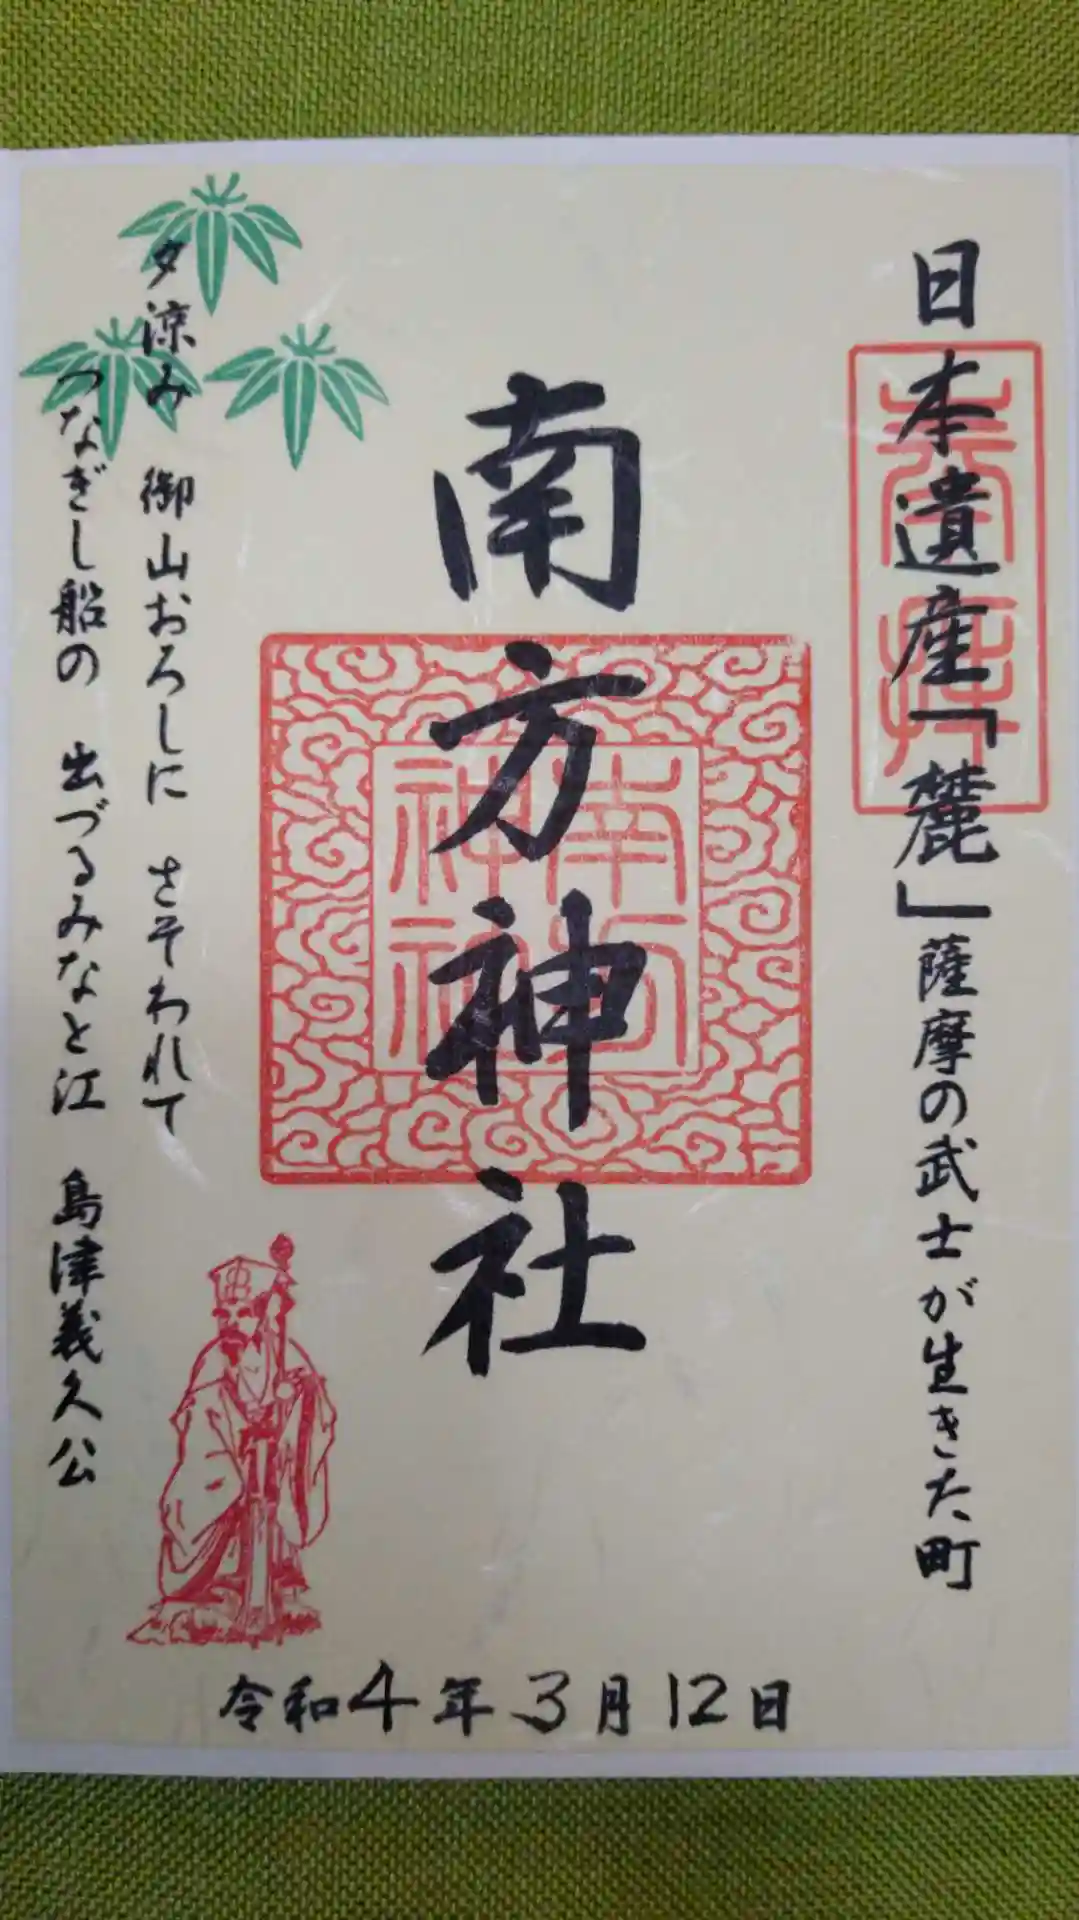 日本遺産「麓」薩摩の武士が生きた町
奉拝
南方神社
南方
神社
夕涼み 御山おろしに さそわれて
つなぎし船の 出づるみなと江 島津義久公
令和4年3月12日